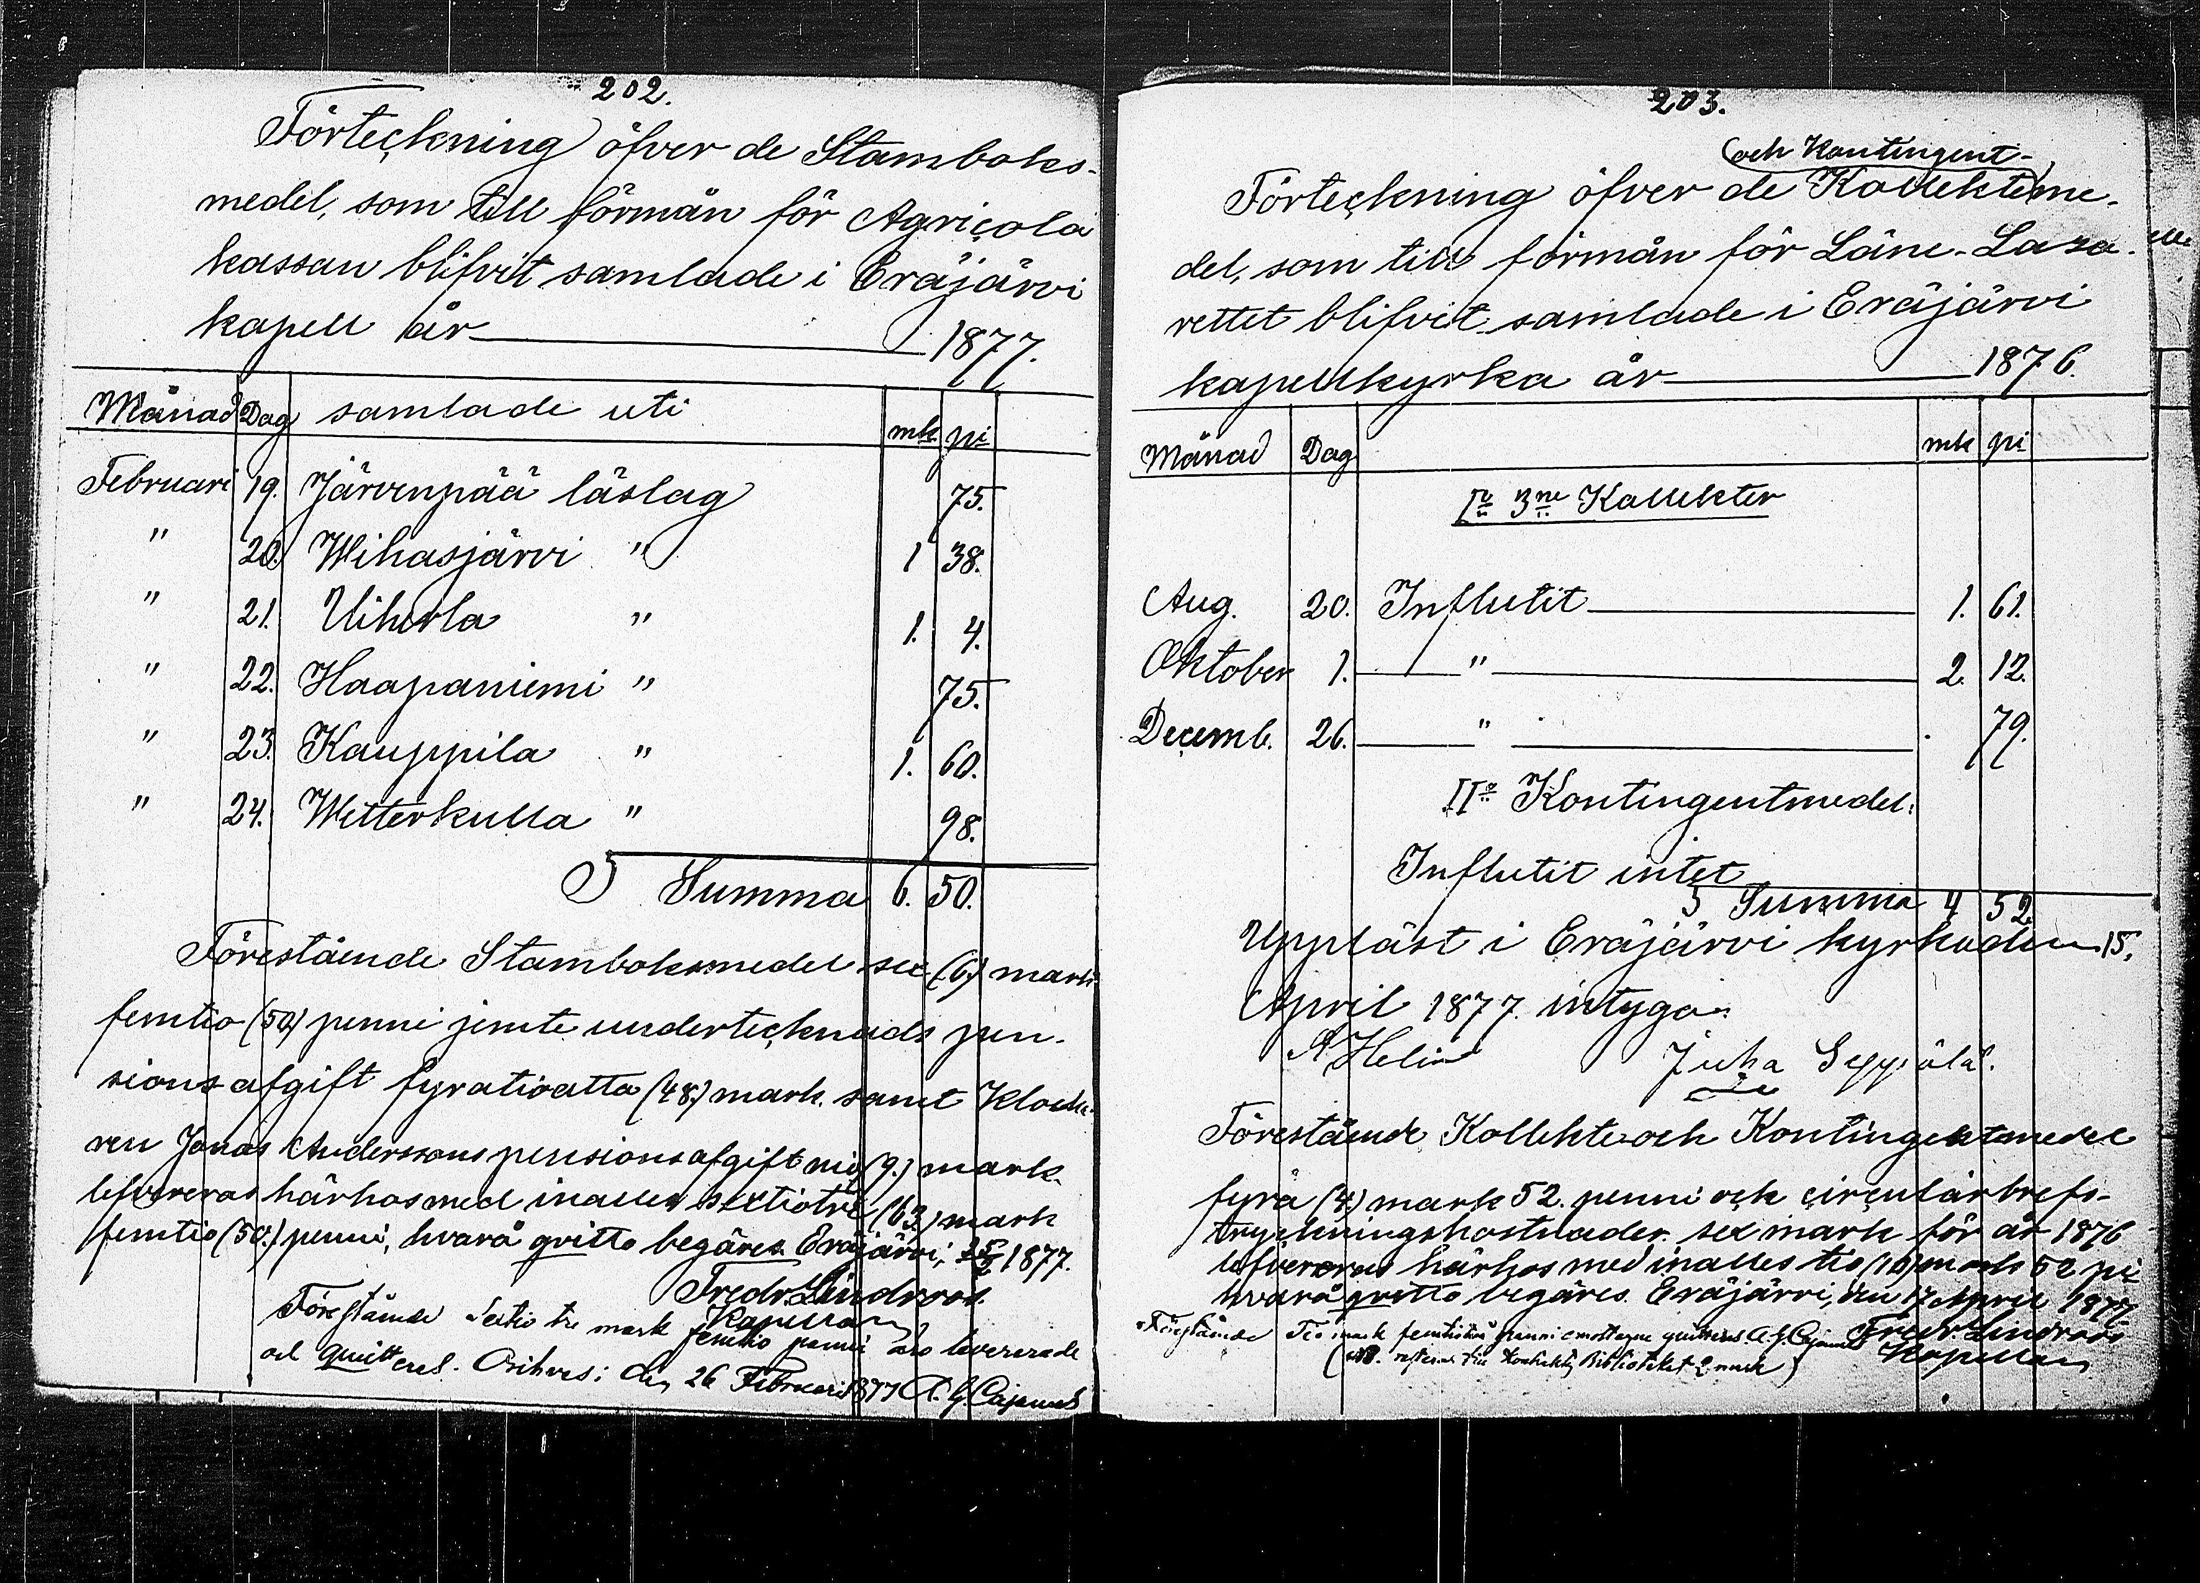 202.
Förteckning öfver de Stamboks-
medel, som till förmån för Agricola
kassan blifvit samlade i Eräjärvi
kapell år 1877.
Månad Dag samlade uti mk pi
Februari 19. Järvenpää läslag 75.
" 20. Wihasjärvi " 1 38.
" 21. Uiherla " 1. 4.
" 22. Haapaniemi " 75.
" 23. Kauppila " 1. 60.
" 24. Wetterkulla " 98.
Summa 6. 50.
Förestående Stamboksmedel sex (6) mark
femtio (50) penni jemte undertecknads pen-
sionsafgift fyratioåtta (48.) mark. samt Klocka-
ren Jonas Anderssons pensionsafgift nio (9.) mark
lefvereras härhos med inalles sextiotre (63.) mark
femtio (50.) penni, hvarå qvitto begäres Eräjärvi, 25/2 1877.
Fredr. Lindroos.
Kapellan
Förestående Sextio tre mark femtio penni äro levererade
och quitteras. Orihvesi den 26 Februari 1877 A. G. Cajanus
203.
och Kontingent-
Förteckning öfver de Kollekteme-
del, som till förmån för Läne-Laza-
rettet blifvit samlade i Eräjärvi
kapellkyrka år 1876.
Månad Dag mk pi
I:o 3ne Kollekter
Aug. 20. Influtit 1. 61.
Oktober 1. " 2. 12.
Decemb. 26. " . 79.
II:o Kontingentmedel:
Influtit intet
Summa 4 52.
Uppläst i Eräjärvi kyrka den 15.
April 1877. intyga:
A Helin Juha Seppälä.
Förestående Kollekte och Kontingentmedel
fyra (4.) mark 52. penni och circulärbrefs-
tryckningskostnader sex mark för år 1876
lefvereras härhos med inalles tio (10) mark 52 pi
hvarå qvitto begäres. Eräjärvi, den 17 April 1877.
Fredr. Lindroos
Kapellan
Föregående Tio mark femtiotvå penni emottagne quitteras A. G. Cajanus